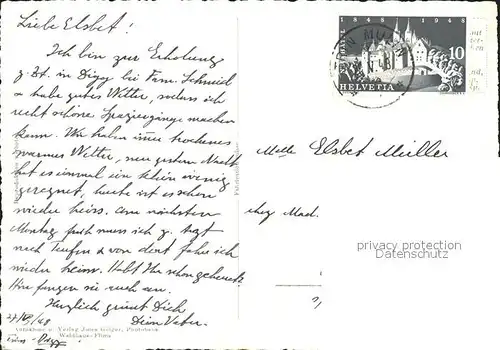 Liebe Elsbet!
Ich bin zur Erholung
z. Zt. in Digg bei Fam. Schmid
& habe gutes Wetter, sodass ich
recht schöne Spaziergänge machen
kann. Wir haben immer trockenes
warmes Wetter, nur gestern Nacht
hat es einmal ein klein wenig
geregnet, heute ist es schon
wieder heiss. Am nächsten
Montag früh muss ich z. Arzt
nach Teufen & von dort fahre ich
wieder heim. Habt Ihr schon geheuet
Hier fangen sie auch an.
Herzlich grüsst Dich
Dein Vater.
Verlag Jules Geiger, Photohaus
Waldhaus-Flims
1848 1948
10
HELVETIA
Melle Elsbet Müller
chez Mad.
privacy protection
Datenschutz